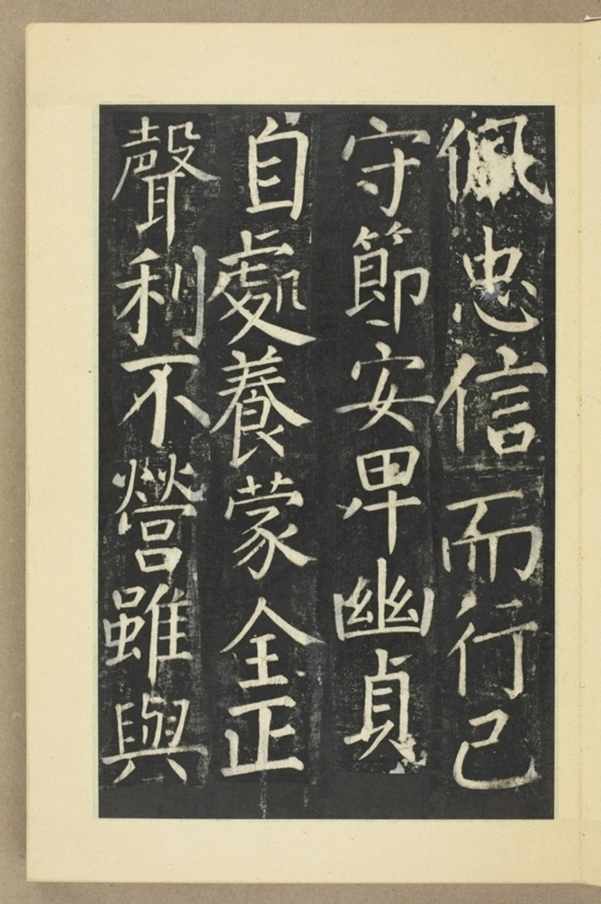 佩忠信而行己
守節安卑幽貞
自處養蒙全正
聲利不營雖與